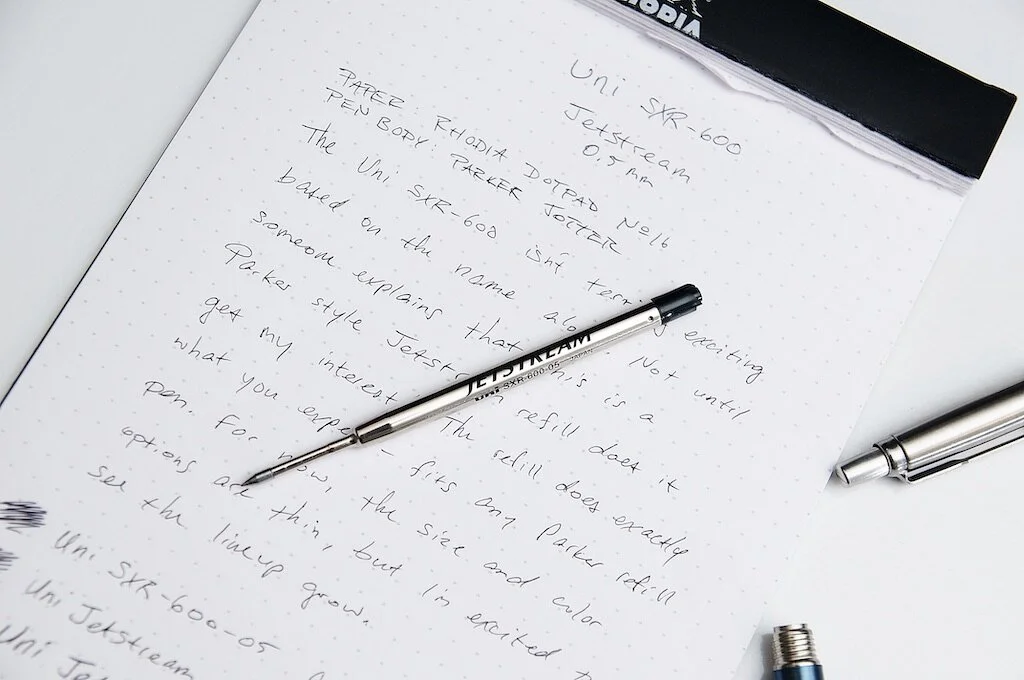 HODIA
Uni SXR-600
Jetstream
0.5 mm
PAPER RHODIA DOTPAD Nº16
PEN BODY: PARKER JOTTER
The Uni SXR-600 isn't exciting
based on the name Not until
someone explains that is a
Parker style refill does it
get my interest The refill does exactly
what you – fits any Parker refill
pen. For now, the size and color
options are thin, but I'm excited
see the lineup grow.
Uni SXR-600-05
Uni Jetstream
Uni
JETSTREAM
uni SXR-600-05 JAPAN